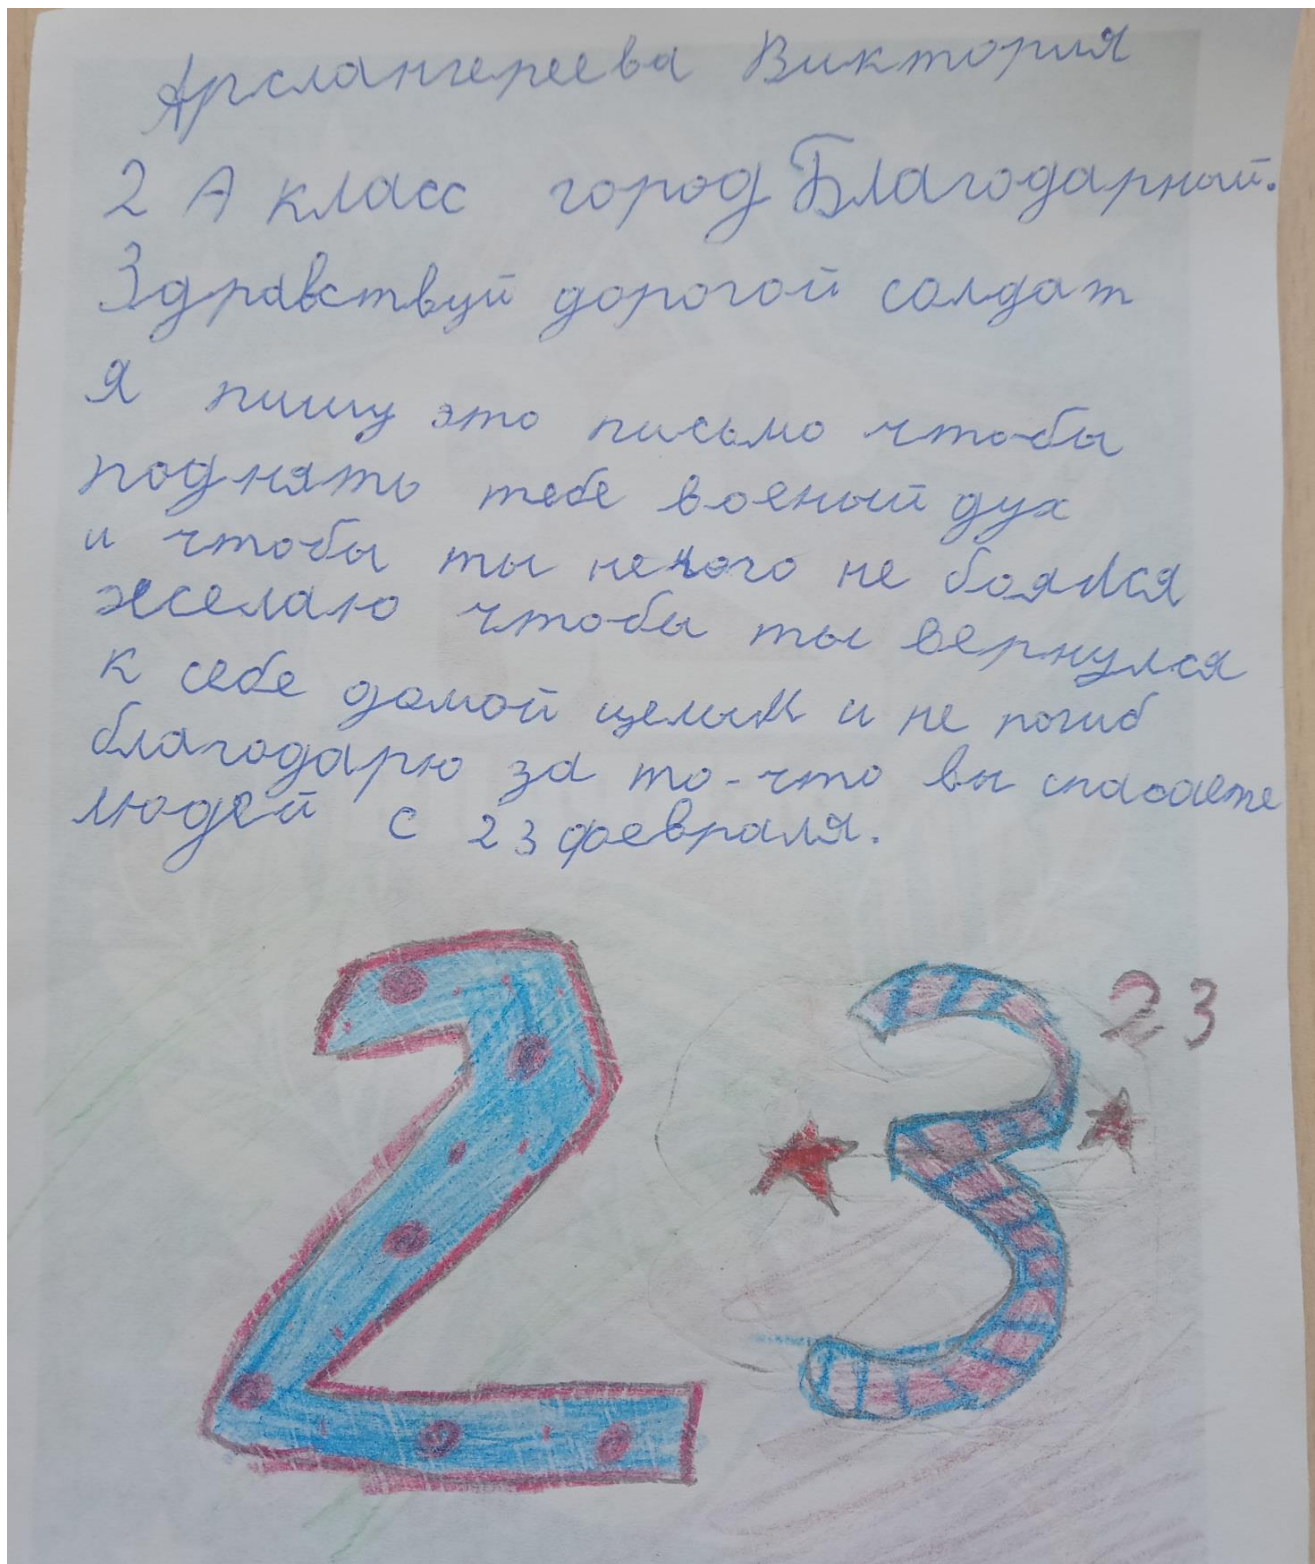 Арслангереева Виктория
2 А класс город Благодарный.
Здравствуй дорогой солдат
Я пишу это письмо чтобы
поднять тебе военый дух
и чтобы ты нечого не боялся
желаю чтобы ты вернулся
к себе домой целым и не погиб
благодарю за то-что вы спасаете
людей с 23 февраля.
23
23